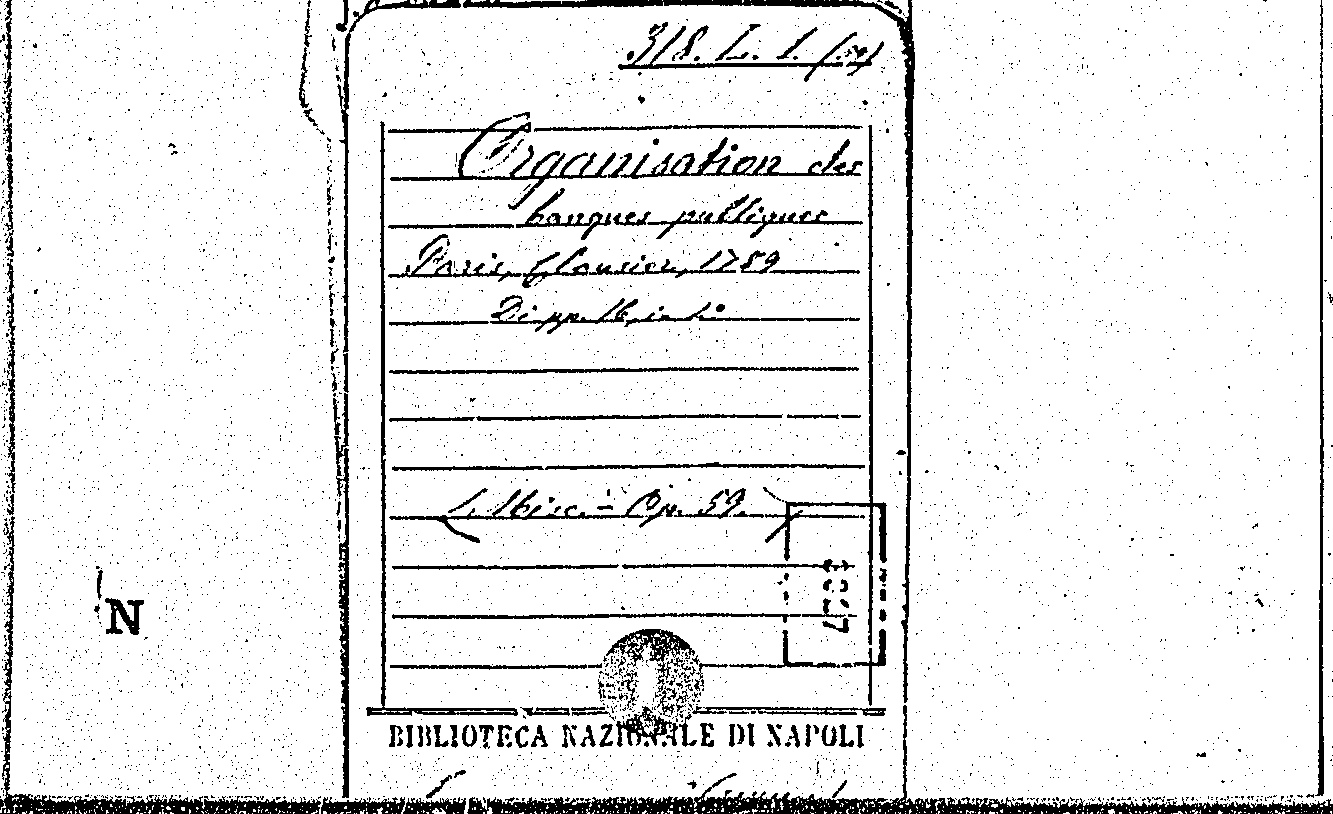 318. L. 1. (59)
Organisation des
banques publiques
Paris, Clousier, 1789
Di pp. 16, in
L. Misc. - Op. 59.
N
BIBLIOTECA NAZIONALE DI NAPOLI